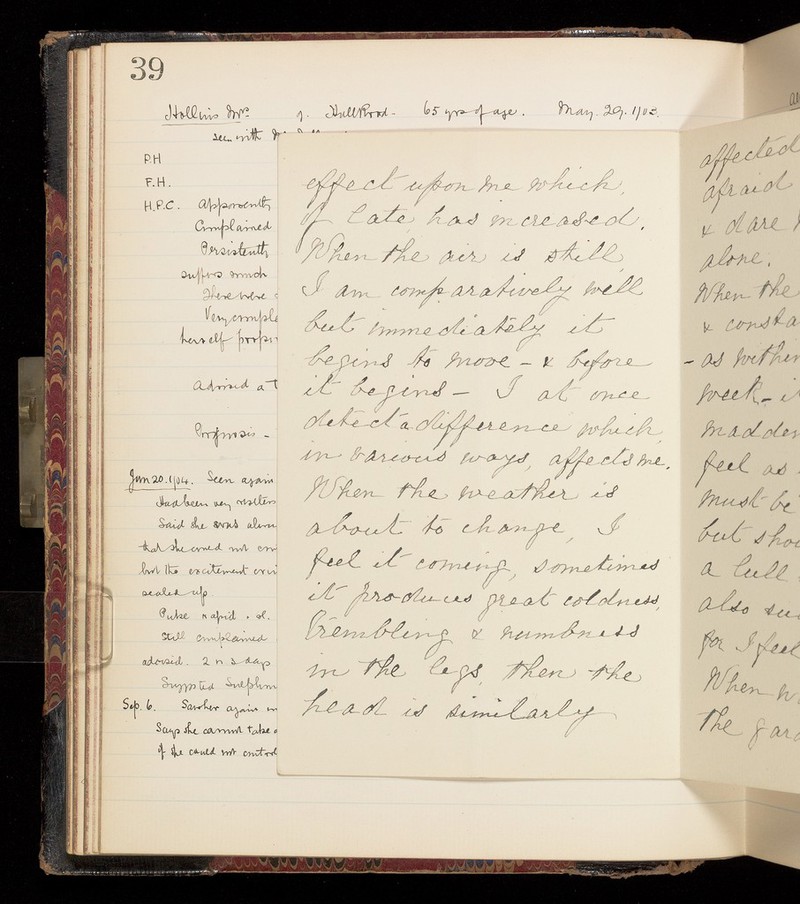 39
Hollins Mrs. of. Hull Road - 65 yrs of age. May. 29. 1903.
seen with
P.H
F.H.
H.P.C. apparently
Complained
Persistently
suffers much
There were
Very comple
herself
Advised a t
Prognosis -
Jan 20. 1904. Seen again
Had been very restless
Said she was
that she could not
but the excitement
sealed up
Pulse rapid
Still complained
advised. 2 or 3 days
Suggested Sulphon
Sep. 6. Saw her again
Says she cannot take
if she could not control
effect upon me which,
of late has increased.
When the air is still
I am comparatively well
but immediately it
begins to move - & before
it begins - I at once
detect a difference which
in various ways, affects me.
When the weather is
about to change, I
feel it coming, sometimes
it produces great coldness,
trembling & numbness
in the legs, then the
head is similarly
affected
afraid
& dare
alone.
When the
& consta
- as within
week - i
madden
feel as
must be
but shou
a lull
also su
for I feel
When w
the gard